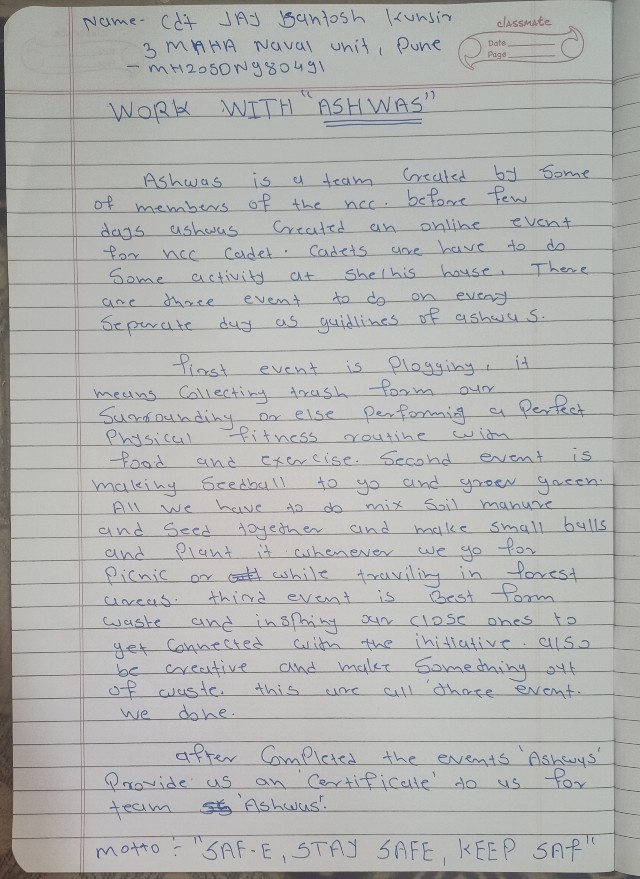 Name- Cdt JAY Santosh Kunsir
classmate
Date
Page
3 MAHA Naval unit, Pune
- MH20SDN980491
WORK WITH "ASHWAS"
Ashwas is a team Created by Some
of members of the ncc. before few
days ashwas Created an online event
for ncc Cadet. Cadets are have to do
Some activity at She/his house. There
are three event to do on every
Separate day as guidlines of ashwas.
first event is Plogging, it
means Collecting trash form our
Surrounding or else Performig a Perfect
Physical fitness routine with
food and exercise. Second event is
making Seedball to go and green.
All we have to do mix Soil manure
and Seed together and make small balls
and Plant it whenever we go for
Picnic or while traviling in forest
areas. third event is Best form
waste and inspring our close ones to
get Connected with the initiative. also
be creative and make Something out
of waste. this are all three event.
we done.
after Completed the events 'Ashwas'
Provide us an 'Certificate' to us for
team 'Ashwas'.
motto :- "SAF-E, STAY SAFE, KEEP SAF"